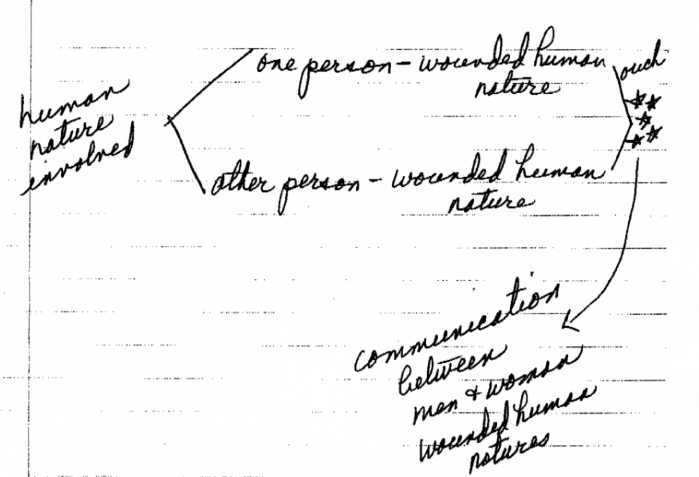 human
nature
involved
one person - wounded human
nature
ouch
other person - wounded human
nature
communication
between
men & woman
wounded human
natures